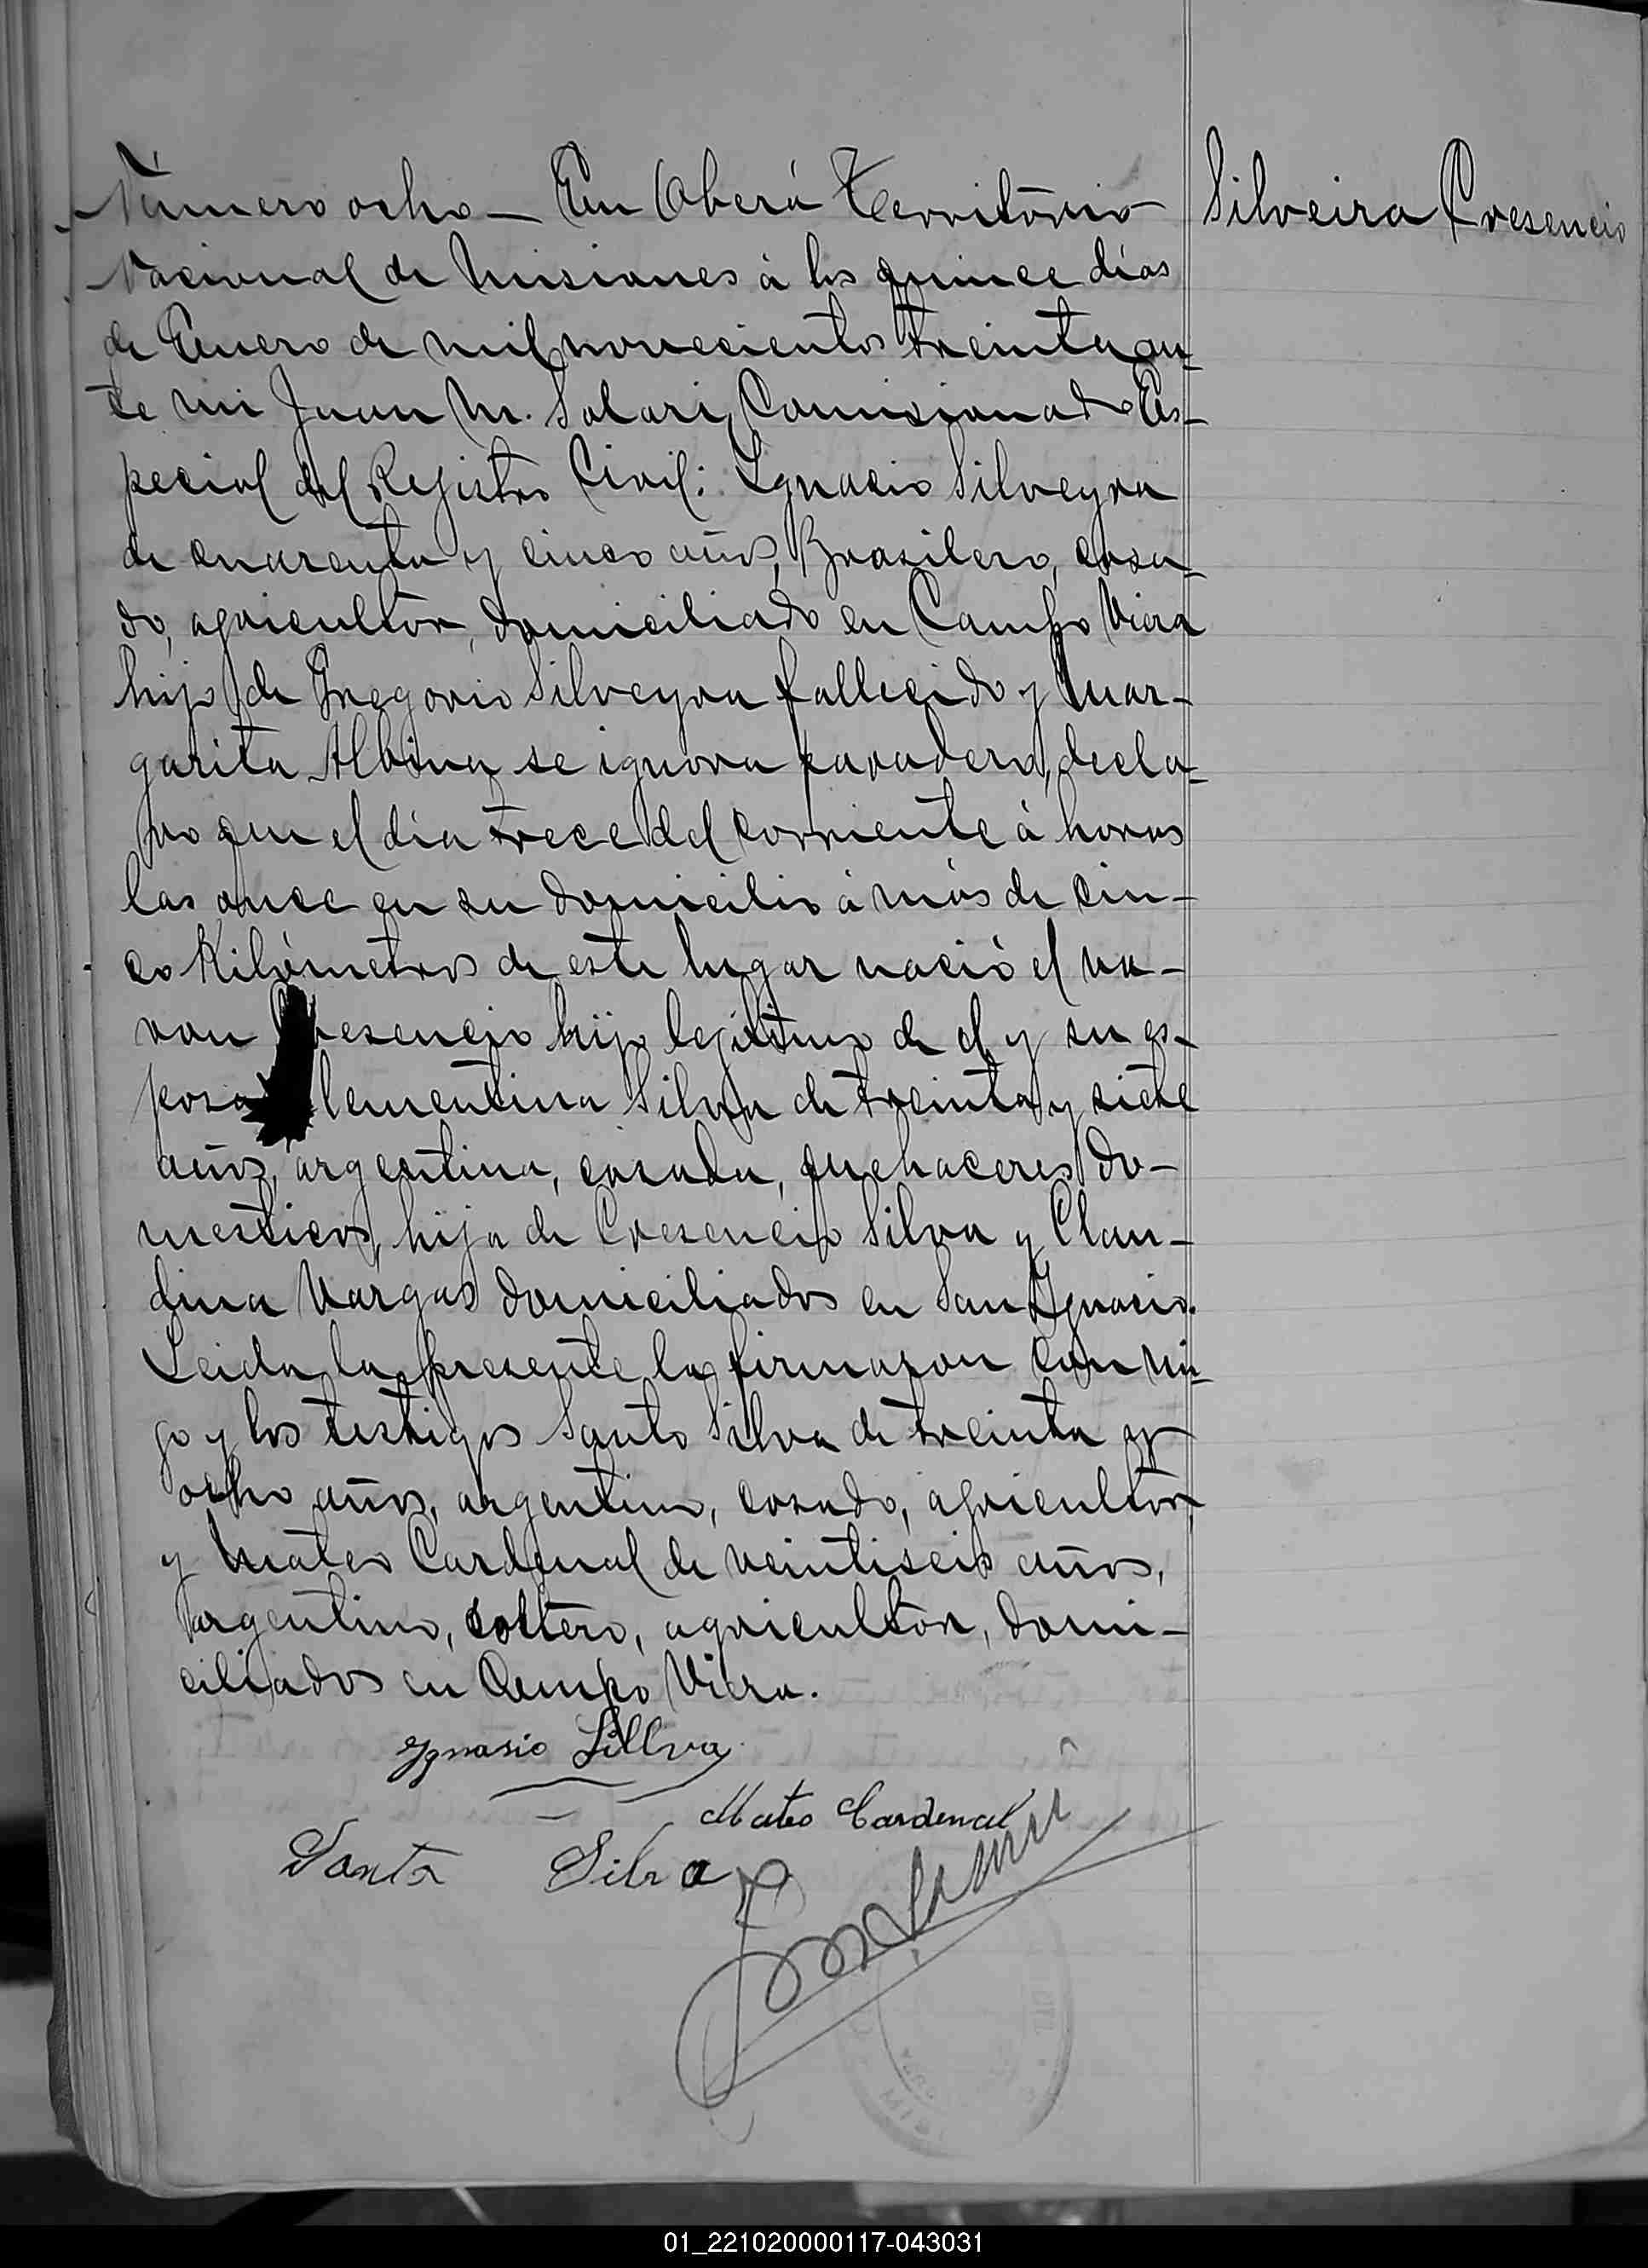 Número ocho — En Oberá Territorio
Silveira Cresencio
Nacional de Misiones à los quince días
de Enero de mil novecientos treinta an-
te mi Juan M. Solari, Comisionado Es-
pecial del Rejistro Civil: Ignacio Silveyra
de cuarenta y cinco años, Brasilero, casa-
do, agricultor, domiciliado en Campo Viera
hijo de Gregorio Silveyra fallecido y Mar-
garita Albina se ignora paradero, decla-
ro que el día trece del corriente à horas
las once en su domicilio à más de cin-
co Kilómetros de este lugar nació el va-
ron Cresencio hijo legitimo de el y su es-
posa Clementina Silva de treinta y siete
años, argentina, casada, quehaceres do-
mesticos, hija de Cresencio Silva y Clau-
dina Vargas domiciliados en San Ignacio.
Leida la presente la firmaron con mi-
go y los testigos Santo Silva de treinta y
ocho años, argentino, casado, agricultor
y Mateo Cardenal de veintiseis años,
argentino, soltero, agricultor, domi-
ciliados en Campo Viera.
Ygnasio Sillva
Mateo Cardenal
Santo Silva
01_221020000117-043031